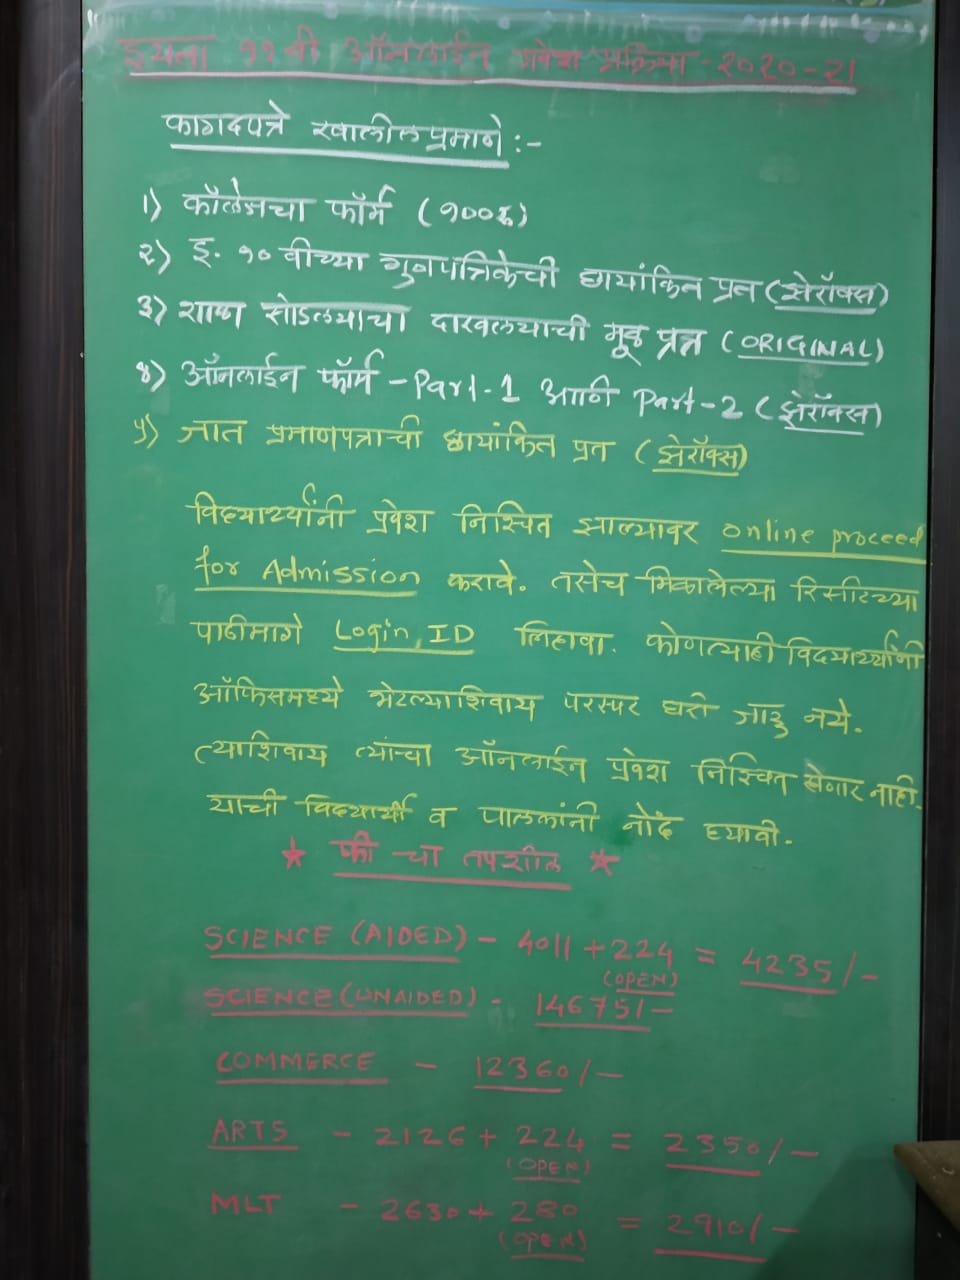 इयत्ता ११ वी ऑनलाईन प्रवेश प्रक्रिया - २०२०-२१
कागदपत्रे खालीलप्रमाणे :-
१) कॉलेजचा फॉर्म (१००रु)
२) इ. १० वीच्या गुणपत्रिकेची छायांकित प्रत (झेरॉक्स)
३) शाळा सोडल्याचा दाखल्याची मूळ प्रत (ORIGINAL)
४) ऑनलाईन फॉर्म - Part-1 आणि Part-2 (झेरॉक्स)
५) जात प्रमाणपत्राची छायांकित प्रत (झेरॉक्स)
विद्यार्थ्यांनी प्रवेश निश्चित झाल्यावर online proceed
for Admission करावे. तसेच मिळालेल्या रिसीटच्या
पाठीमागे Login, ID लिहावा. कोणत्याही विद्यार्थ्यांनी
ऑफिसमध्ये भेटल्याशिवाय परस्पर घरी जाऊ नये.
त्याशिवाय त्यांचा ऑनलाईन प्रवेश निश्चित होणार नाही.
याची विद्यार्थी व पालकांनी नोंद घ्यावी.
★ फी चा तपशील ★
SCIENCE (AIDED) - 4011 + 224 = 4235/-
(OPEN)
SCIENCE (UNAIDED) - 14675/-
COMMERCE - 12360/-
ARTS - 2126 + 224 = 2350/-
(OPEN)
MLT - 2630 + 280 = 2910/-
(OPEN)